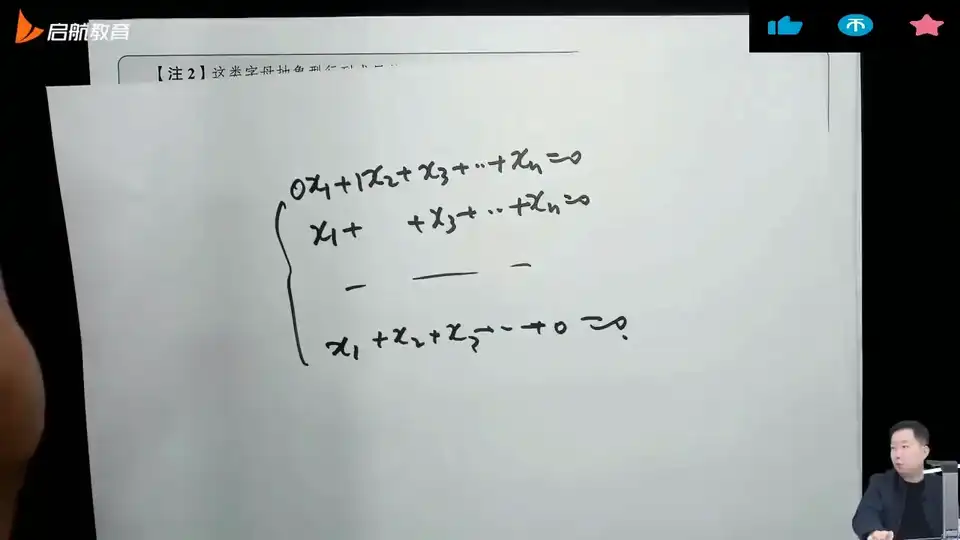 启航教育
【注2】这类字母抽象型行列式
0x₁+1x₂+x₃+··+xₙ=0
x₁+ +x₃+··+xₙ=0
— — —
x₁+x₂+x₃+··+0=0